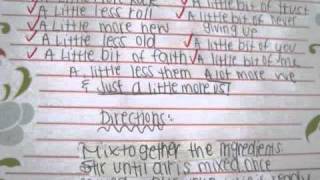 A little bit of trust
A little less Roll
A little bit of never
giving up
A little more new
A little less old
A little bit of you
A little bit of faith
A little bit of me
A little less them
A lot more we
& Just a little more us!
Directions:
Mix together the ingredients.
Stir until all is mixed once